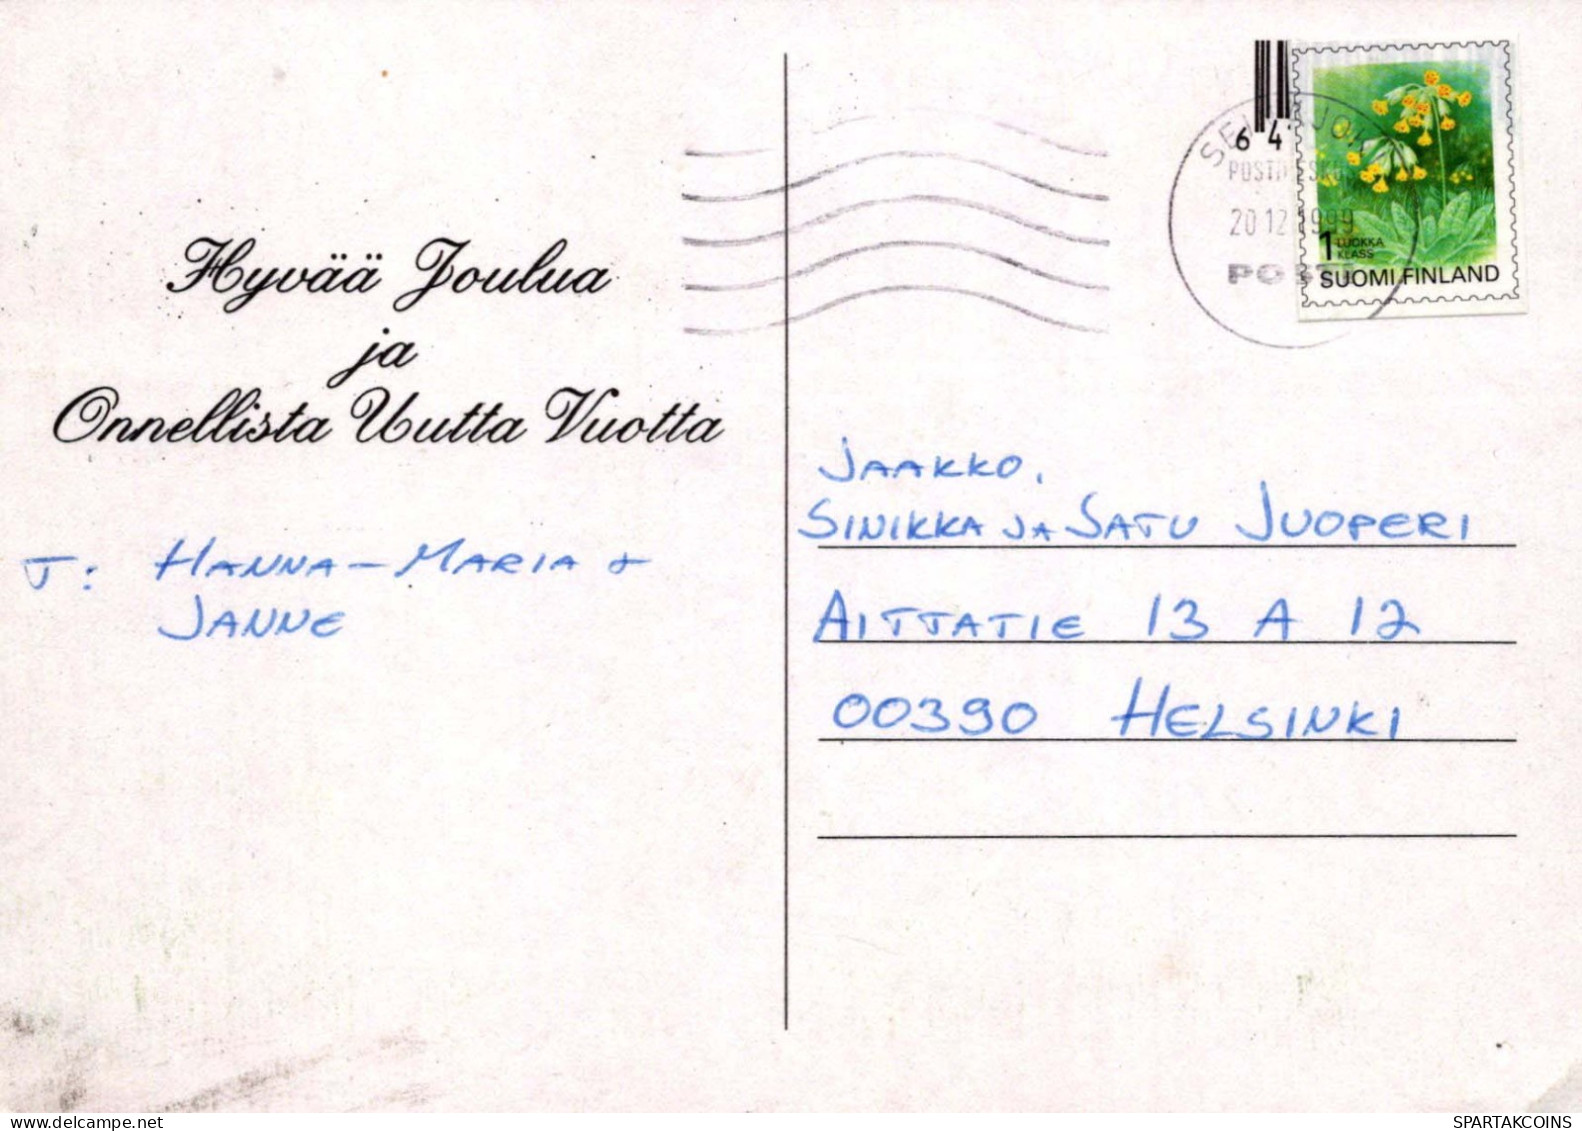 Hyvää Joulua
ja
Onnellista Uutta Vuotta
T: HANNA-MARIA +
JANNE
64
20.12.1999
1 LUOKKA
KLASS
SUOMI FINLAND
JAAKKO,
SINIKKA JA SATU JUOPERI
AITTATIE 13 A 12
00390 HELSINKI
delcampe.net
SPARTAKCOINS